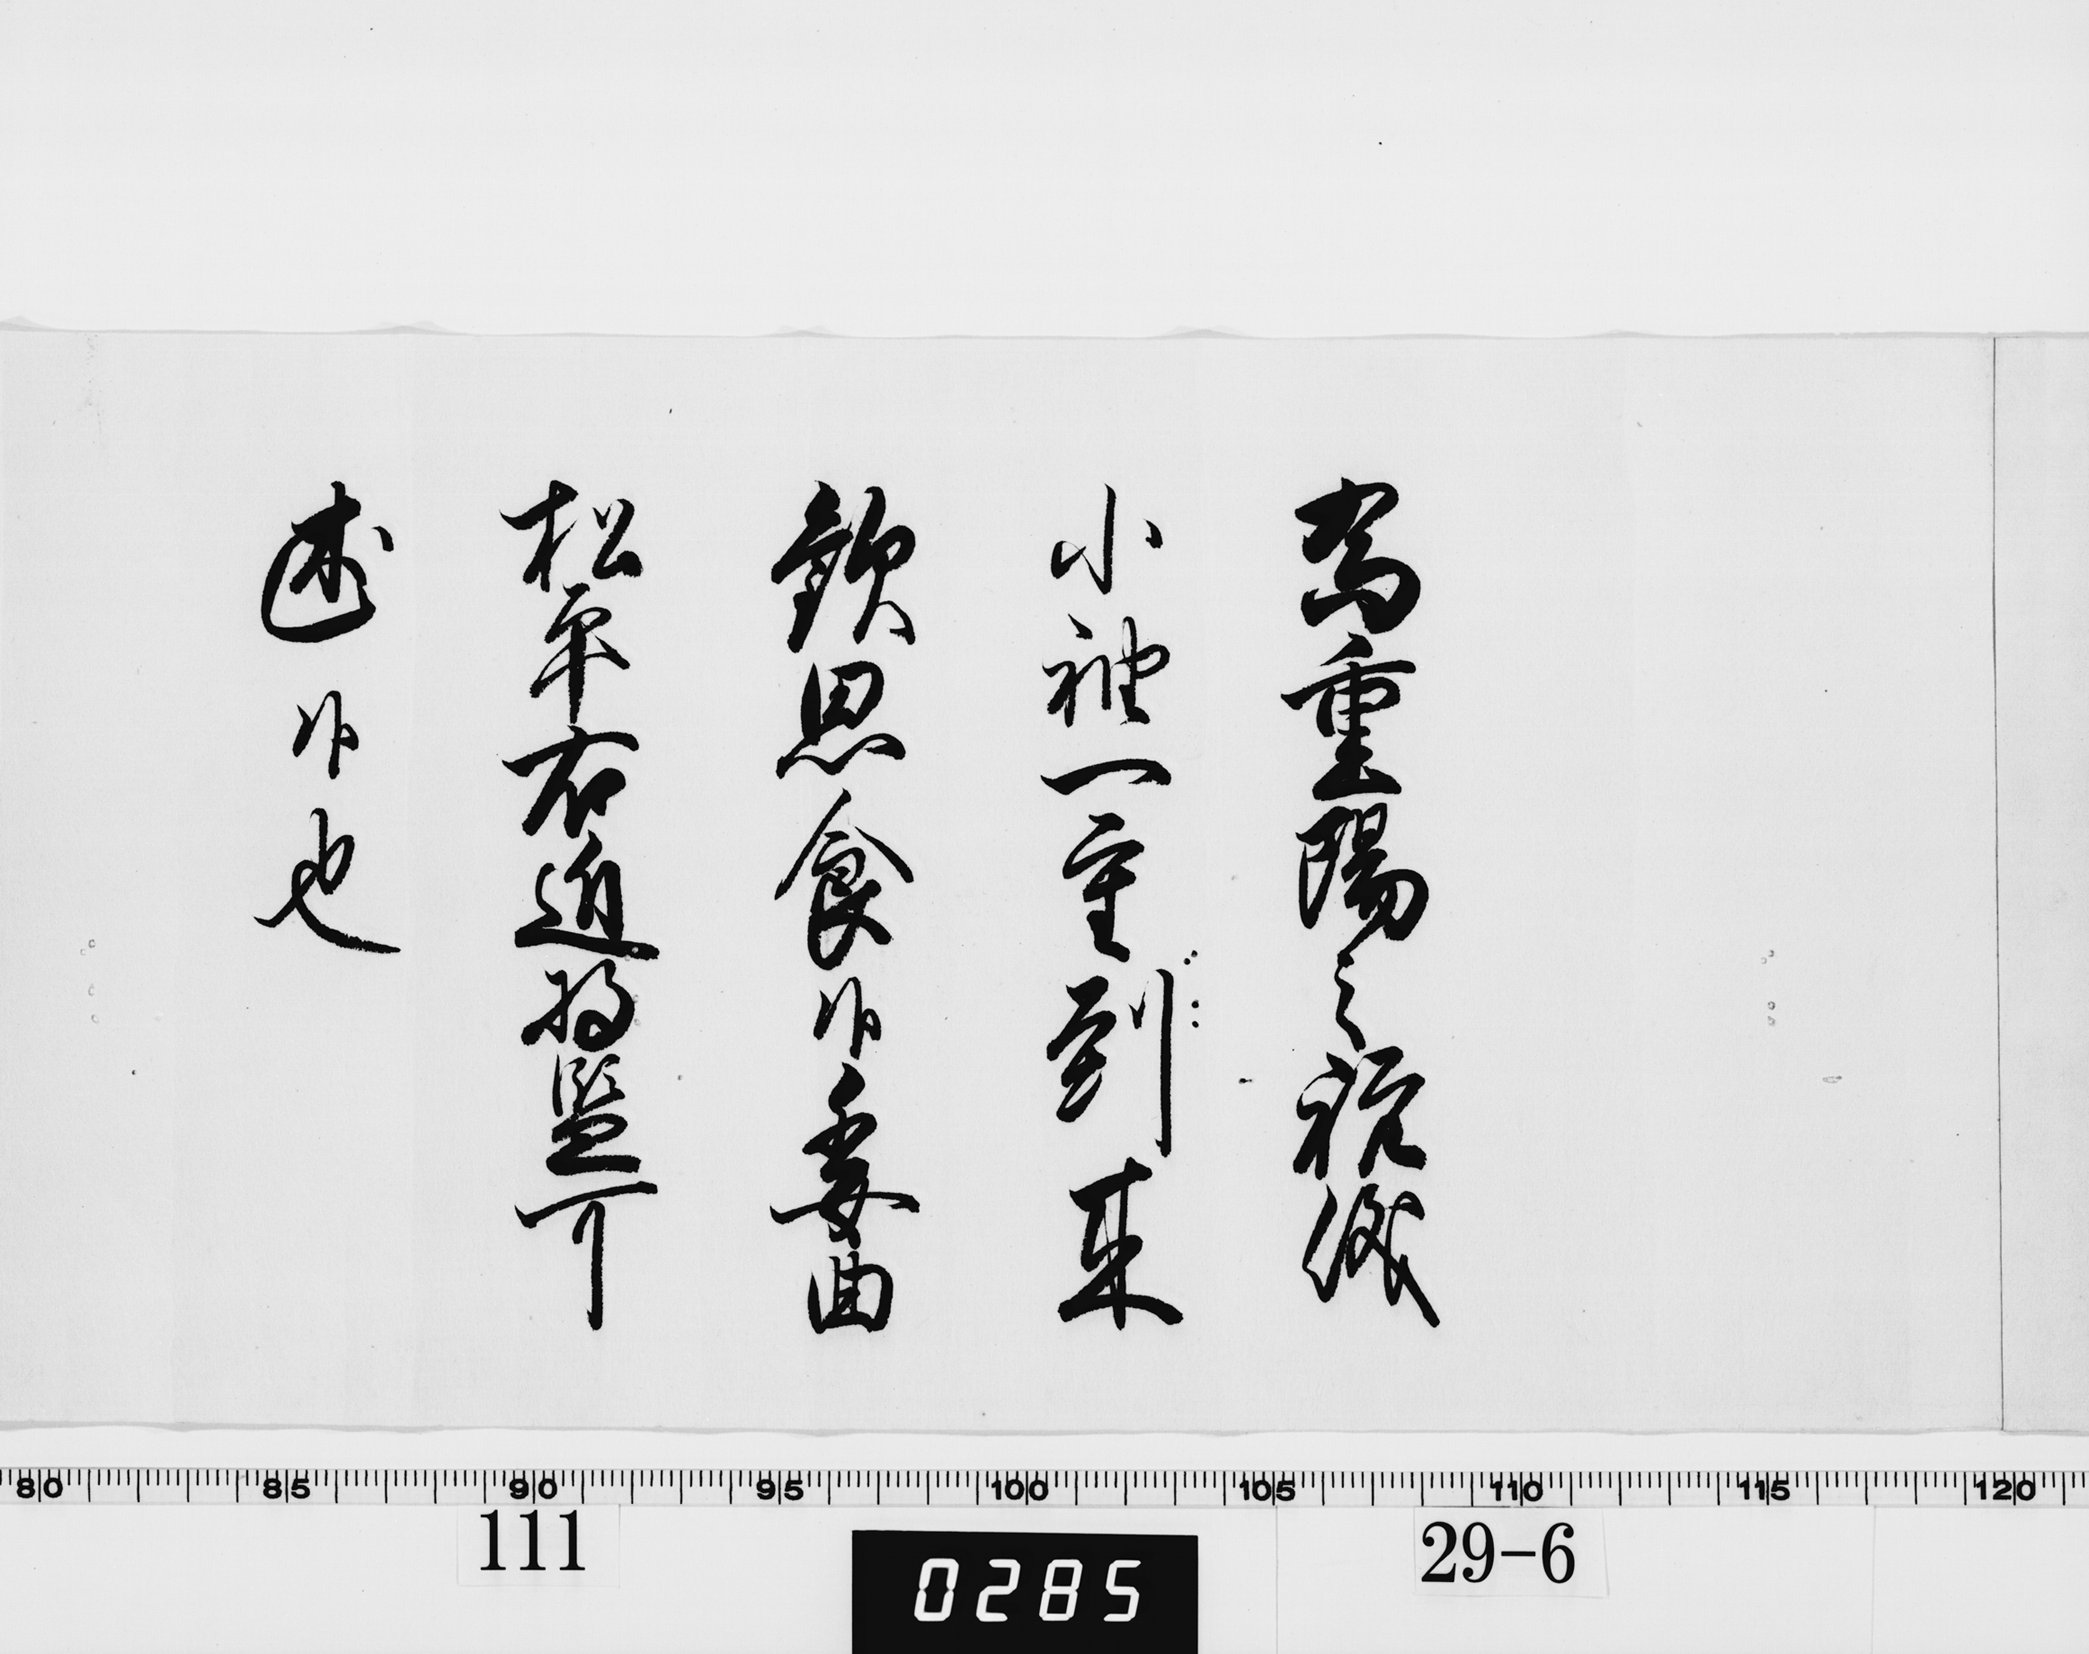 為重陽之祝儀
小袖一重到来
歓思食候委曲
松平右近将監可
述候也
80 85 90 95 100 105 110 115 120
111
0285
29-6